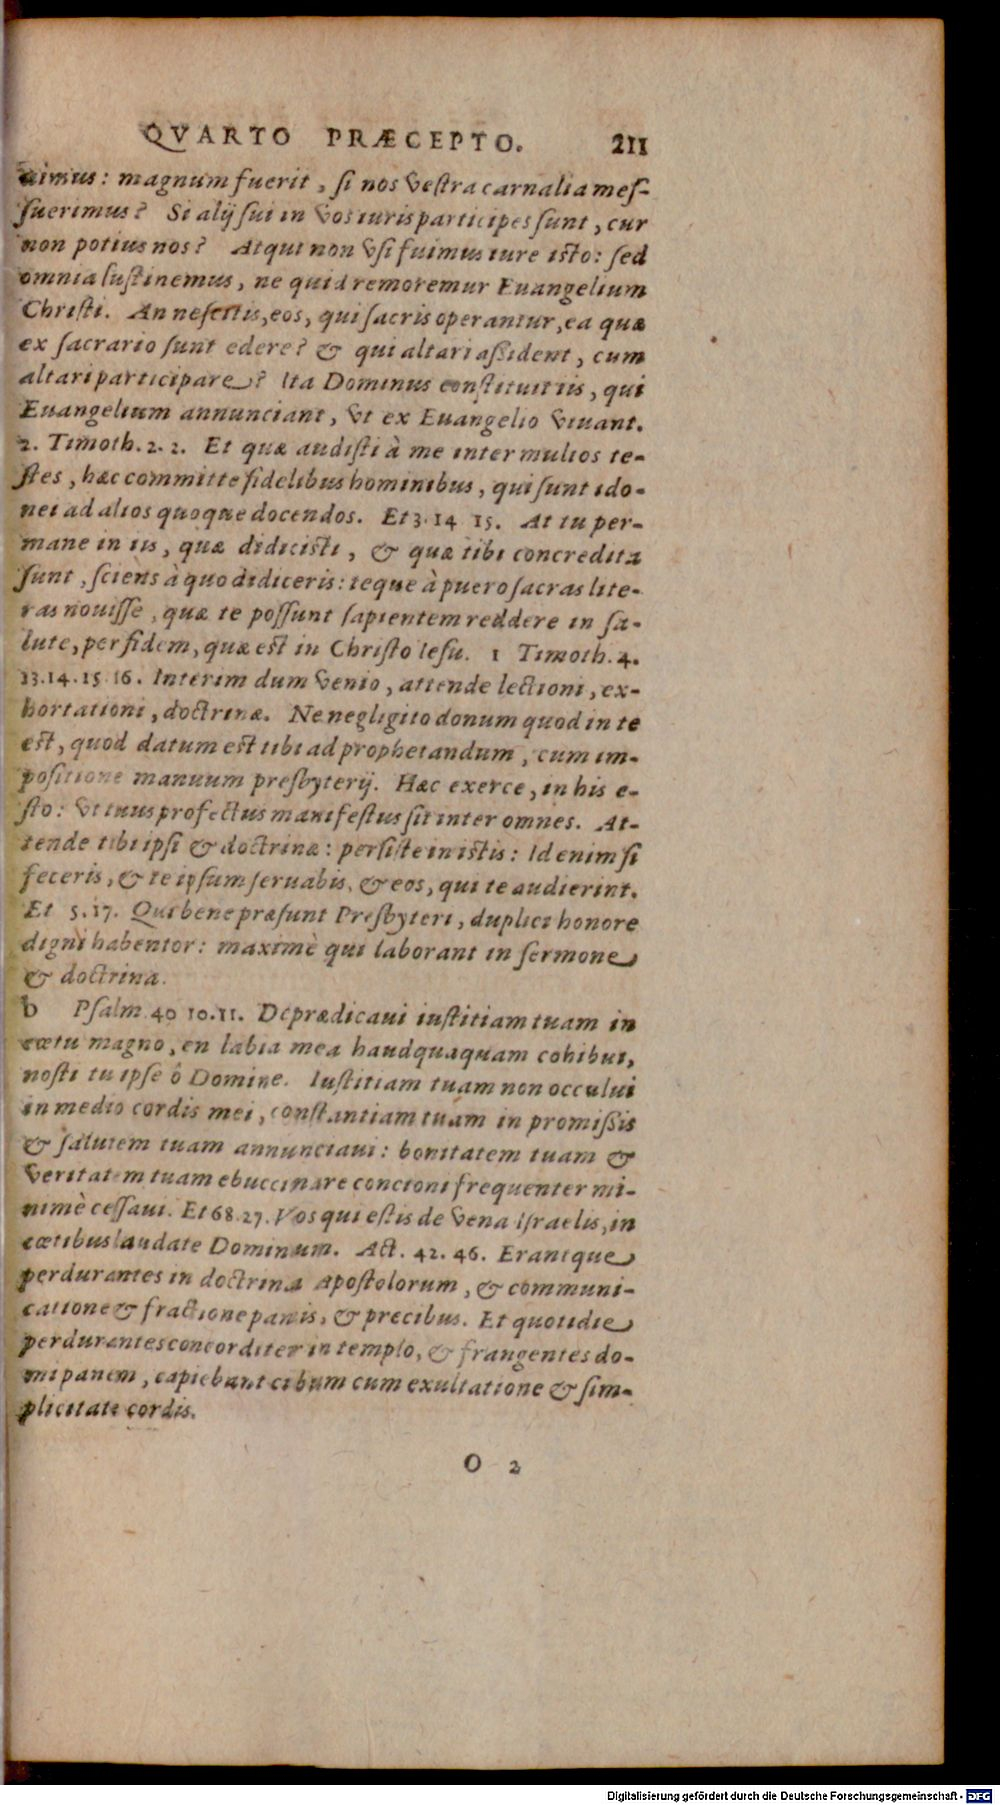 QVARTO PRÆCEPTO. 211
uimus: magnum fuerit, si nos vestra carnalia mes-
suerimus? Si alij sui in vos iuris participes sunt, cur
non potius nos? Atqui non vsi fuimus iure isto: sed
omnia sustinemus, ne quid remoremur Euangelium
Christi. An nescitis, eos, qui sacris operantur, ea quæ
ex sacrario sunt edere? & qui altari aßident, cum
altari participare? Ita Dominus constituit iis, qui
Euangelium annunciant, vt ex Euangelio viuant.
2. Timoth. 2. 2. Et quæ audisti à me inter multos te-
stes, hæc committe fidelibus hominibus, qui sunt ido-
nei ad alios quoque docendos. Et 3. 14 15. At tu per-
mane in iis, quæ didicisti, & quæ tibi concredita
sunt, sciens à quo didiceris: teque à puero sacras lite-
ras nouisse, quæ te possunt sapientem reddere in sa-
lute, per fidem, quæ est in Christo Iesu. 1 Timoth. 4.
13. 14. 15 16. Interim dum venio, attende lectioni, ex-
hortationi, doctrinæ. Ne negligito donum quod in te
est, quod datum est tibi ad prophetandum, cum im-
positione manuum presbyterij. Hæc exerce, in his e-
sto: vt tuus profectus manifestus sit inter omnes. At-
tende tibi ipsi & doctrinæ: persiste in istis: Id enim si
feceris, & te ipsum seruabis, & eos, qui te audierint.
Et 5. 17. Qui bene præsunt Presbyteri, duplici honore
digni habentor: maximè qui laborant in sermone
& doctrina.
b Psalm. 40 10. 11. Deprædicaui iustitiam tuam in
cœtu magno, en labia mea haudquaquam cohibui,
nosti tu ipse ô Domine. Iustitiam tuam non occului
in medio cordis mei, constantiam tuam in promißis
& salutem tuam annunciaui: bonitatem tuam &
veritatem tuam ebuccinare concioni frequenter mi-
nimè cessaui. Et 68. 27. Vos qui estis de vena Israelis, in
cœtibus laudate Dominum. Act. 42. 46. Erantque
perdurantes in doctrina Apostolorum, & communi-
catione & fractione panis, & precibus. Et quotidie
perdurantes concorditer in templo, & frangentes do-
mi panem, capiebant cibum cum exultatione & sim-
plicitate cordis.
O 2
Digitalisierung gefördert durch die Deutsche Forschungsgemeinschaft - DFG